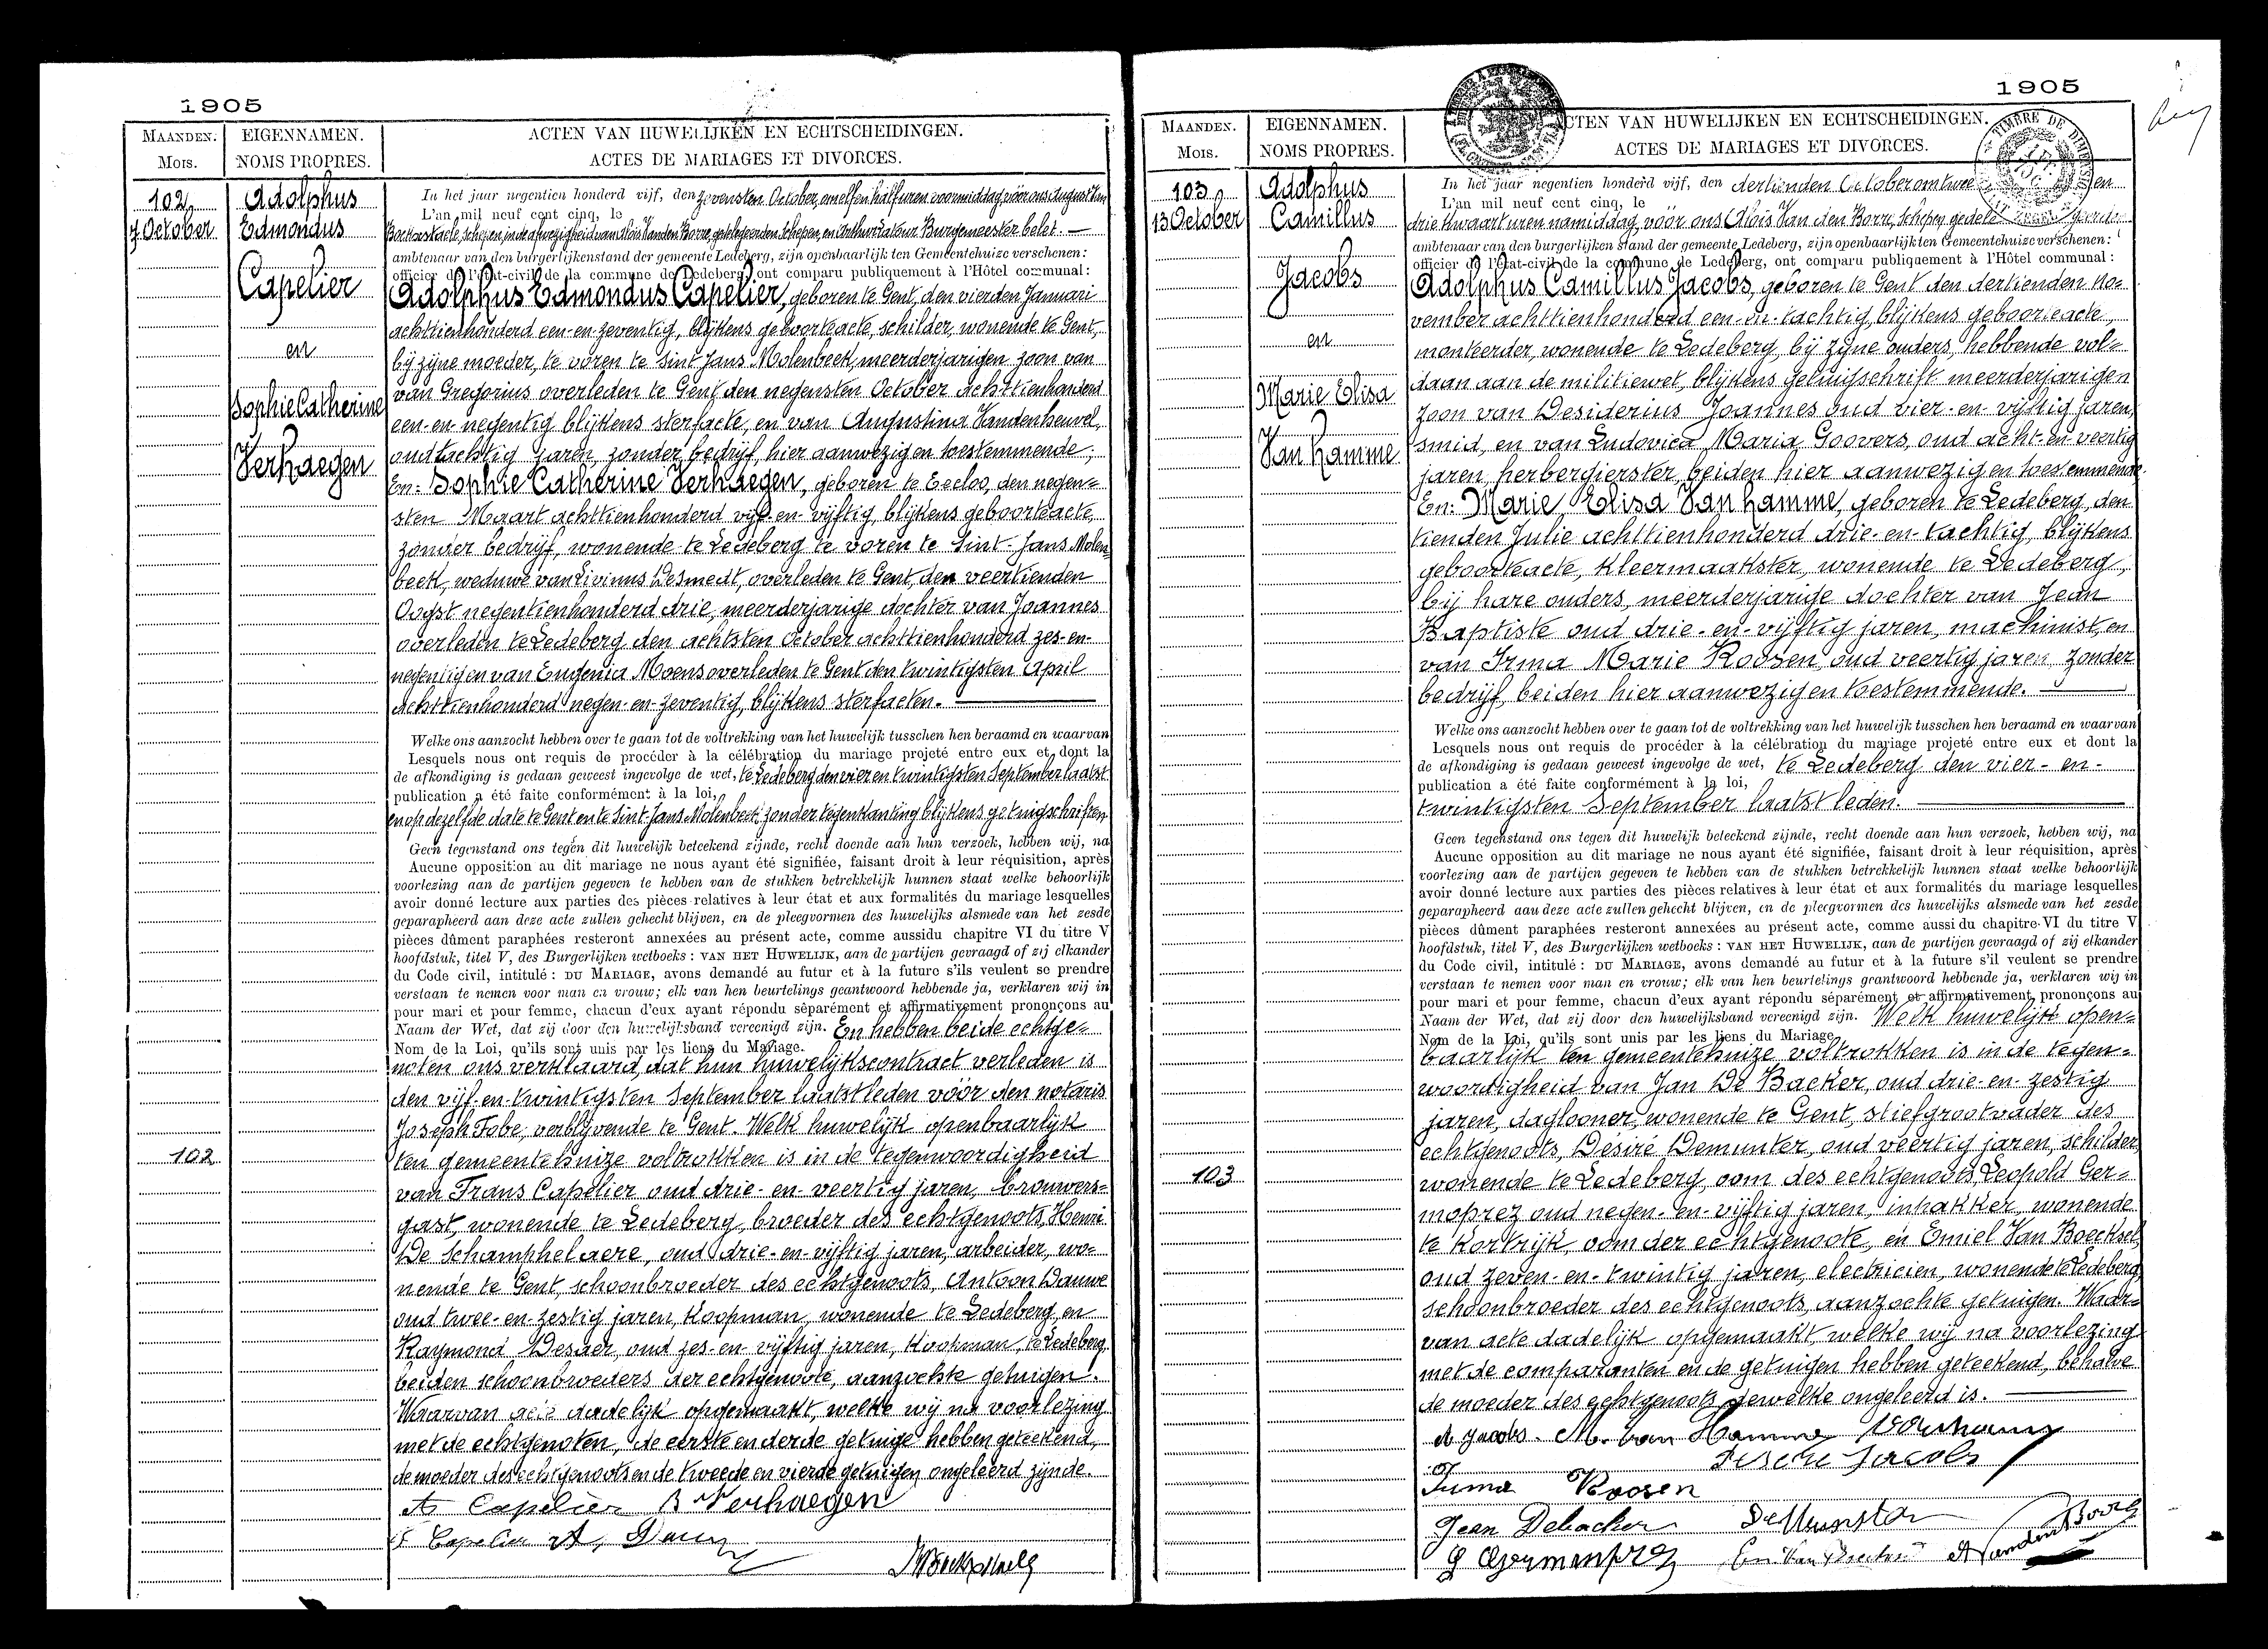 1905
MAANDEN. EIGENNAMEN. ACTEN VAN HUWELIJKEN EN ECHTSCHEIDINGEN.
MOIS. NOMS PROPRES. ACTES DE MARIAGES ET DIVORCES.
102
7 October
Adolphus
Edmondus
Capelier
en
Sophie Catherine
Verhaegen
In het jaar negentien honderd vijf, den zevensten October, om elf en half uren voormiddag, vóór ons August Van
L'an mil neuf cent cinq, le
Bockxstaele, schepen, in de afwezigheid van Aloïs Van den Borre, gedelegeerden schepen, en Arthur Latour Burgemeester belet. —
ambtenaar van den burgerlijkenstand der gemeente Ledeberg, zijn openbaarlijk ten Gemeentehuize verschenen:
officier de l'état-civil de la commune de Ledeberg, ont comparu publiquement à l'Hôtel communal:
Adolphus Edmondus Capelier, geboren te Gent, den vierden Januari
achttienhonderd een-en-zeventig, blijkens geboorteacte, schilder, wonende te Gent,
bij zijne moeder, te voren te Sint Jans Molenbeek, meerderjarigen zoon van
van Gregorius overleden te Gent den negensten October achttienhonderd
een-en-negentig blijkens sterfacte, en van Augustina Vandenheuvel,
oud tachtig jaren, zonder bedrijf, hier aanwezig en toestemmende;
En: Sophie Catherine Verhaegen, geboren te Eecloo, den negen=
sten Maart achttienhonderd vijf-en-vijftig, blijkens geboorteacte,
zonder bedrijf, wonende te Ledeberg te voren te Sint-Jans Molen=
beek, weduwe van Livinus Desmedt, overleden te Gent, den veertienden
Oogst negentienhonderd drie, meerderjarige dochter van Joannes
overleden te Ledeberg den achtsten October achttienhonderd zes-en-
negentig en van Eugenia Moens overleden te Gent den twintigsten April
achttienhonderd negen-en-zeventig, blijkens sterfacten. —
Welke ons aanzocht hebben over te gaan tot de voltrekking van het huwelijk tusschen hen beraamd en waarvan
Lesquels nous ont requis de procéder à la célébration du mariage projeté entre eux et dont la
de afkondiging is gedaan geweest ingevolge de wet, te Ledeberg den vier en twintigsten September laatst
publication a été faite conformément à la loi,
en op dezelfde date te Gent en te Sint-Jans Molenbeek, zonder tegenkanting blijkens getuigschriften
Geen tegenstand ons tegen dit huwelijk beteekend zijnde, recht doende aan hun verzoek, hebben wij, na
Aucune opposition au dit mariage ne nous ayant été signifiée, faisant droit à leur réquisition, après
voorlezing aan de partijen gegeven te hebben van de stukken betrekkelijk hunnen staat welke behoorlijk
avoir donné lecture aux parties des pièces relatives à leur état et aux formalités du mariage lesquelles
geparapheerd aan deze acte zullen gehecht blijven, en de pleegvormen des huwelijks alsmede van het zesde
pièces dûment paraphées resteront annexées au présent acte, comme aussidu chapitre VI du titre V
hoofdstuk, titel V, des Burgerlijken wetboeks : VAN HET HUWELIJK, aan de partijen gevraagd of zij elkander
du Code civil, intitulé : DU MARIAGE, avons demandé au futur et à la future s'ils veulent se prendre
verstaan te nemen voor man en vrouw; elk van hen beurtelings geantwoord hebbende ja, verklaren wij in
pour mari et pour femme, chacun d'eux ayant répondu séparément et affirmativement prononçons au
Naam der Wet, dat zij door den huwelijksband vereenigd zijn. En hebben beide echtge=
Nom de la Loi, qu'ils sont unis par les liens du Mariage.
noten ons verklaard, dat hun huwelijkscontract verleden is
den vijf-en-twintigsten September laatstleden vóór den notaris
Joseph Fobe, verblijvende te Gent. Welk huwelijk openbaarlijk
102
ten gemeentehuize voltrokken is in de tegenwoordigheid
van Frans Capelier oud drie-en-veertig jaren, brouwers=
gast, wonende te Ledeberg, broeder des echtgenoots, Henri
De Schamphelaere, oud drie-en-vijftig jaren, arbeider, wo=
nende te Gent, schoonbroeder des echtgenoots, Antoon Dauwe
oud twee-en-zestig jaren, koopman, wonende te Ledeberg, en
Raymond Desaer, oud zes-en-vijftig jaren, koopman, te Ledeberg.
beiden schoonbroeders der echtgenoote, aanzochte getuigen.
Waarvan acte dadelijk opgemaakt, welke wij na voorlezing
met de echtgenoten, de eerste en derde getuige hebben geteekend,
de moeder des echtgenoots en de tweede en vierde getuigen ongeleerd zijnde.
A Capelier S Verhaegen
F Capelier A, Dauwe
1905
MAANDEN. EIGENNAMEN. ACTEN VAN HUWELIJKEN EN ECHTSCHEIDINGEN.
MOIS. NOMS PROPRES. ACTES DE MARIAGES ET DIVORCES.
TIMBRE DE DIMEN
103
13 October
Adolphus
Camillus
Jacobs
en
Marie Elisa
Van Hamme
In het jaar negentien honderd vijf, den dertienden October om twee en
L'an mil neuf cent cinq, le
drie kwaart uren namiddag, vóór ons Aloïs Van den Borre, schepen, gedele
ambtenaar van den burgerlijken stand der gemeente Ledeberg, zijn openbaarlijk ten Gemeentehuize verschenen:
officier de l'état-civil de la commune de Ledeberg, ont comparu publiquement à l'Hôtel communal:
Adolphus Camillus Jacobs, geboren te Gent den dertienden No=
vember achttienhonderd een-en-tachtig, blijkens geboorteacte,
monteerder, wonende te Ledeberg, bij zijne ouders, hebbende vol=
daan aan de militiewet, blijkens getuigschrift meerderjarigen
zoon van Desiderius Joannes oud vier-en-vijftig jaren,
smid, en van Ludovica Maria Goovers, oud acht-en-veertig
jaren, herbergierster, beiden hier aanwezig en toestemmende.
En: Marie Elisa Van Hamme, geboren te Ledeberg, den
tienden Julie achttienhonderd drie-en-tachtig, blijkens
geboorteacte, kleermaakster, wonende te Ledeberg,
bij hare ouders, meerderjarige dochter van Jean
Baptiste oud drie-en-vijftig jaren, machinist, en
van Irma Marie Roosen, oud veertig jaren, zonder
bedrijf, beiden hier aanwezig en toestemmende. —
Welke ons aanzocht hebben over te gaan tot de voltrekking van het huwelijk tusschen hen beraamd en waarvan
Lesquels nous ont requis de procéder à la célébration du mariage projeté entre eux et dont la
de afkondiging is gedaan geweest ingevolge de wet, te Ledeberg den vier-en-
publication a été faite conformément à la loi,
twintigsten September laatstleden. —
Geen tegenstand ons tegen dit huwelijk beteekend zijnde, recht doende aan hun verzoek, hebben wij, na
Aucune opposition au dit mariage ne nous ayant été signifiée, faisant droit à leur réquisition, après
voorlezing aan de partijen gegeven te hebben van de stukken betrekkelijk hunnen staat welke behoorlijk
avoir donné lecture aux parties des pièces relatives à leur état et aux formalités du mariage lesquelles
geparapheerd aan deze acte zullen gehecht blijven, en de pleegvormen des huwelijks alsmede van het zesde
pièces dûment paraphées resteront annexées au présent acte, comme aussi du chapitre VI du titre V
hoofdstuk, titel V, des Burgerlijken wetboeks : VAN HET HUWELIJK, aan de partijen gevraagd of zij elkander
du Code civil, intitulé : DU MARIAGE, avons demandé au futur et à la future s'il veulent se prendre
verstaan te nemen voor man en vrouw; elk van hen beurtelings geantwoord hebbende ja, verklaren wij in
pour mari et pour femme, chacun d'eux ayant répondu séparément et affirmativement, prononçons au
Naam der Wet, dat zij door den huwelijksband vereenigd zijn. Welk huwelijk open=
Nom de la Loi, qu'ils sont unis par les liens du Mariage
baarlijk ten gemeentehuize voltrokken is in de tegen=
woordigheid van Jan De Backer, oud drie-en-zestig
jaren, daglooner, wonende te Gent, stiefgrootvader des
echtgenoots, Désiré Demunter, oud veertig jaren, schilder,
103
wonende te Ledeberg, oom des echtgenoots, Leopold Ger=
monprez oud negen-en-vijftig jaren, inhakker, wonende
te Kortrijk, oom der echtgenoote, en Emiel Van Boecksel,
oud zeven-en-twintig jaren, electricien, wonende te Ledeberg,
schoonbroeder des echtgenoots, aanzochte getuigen. Waar=
van acte dadelijk opgemaakt, welke wij na voorlezing
met de comparanten en de getuigen hebben geteekend, behalve
de moeder des echtgenoots, dewelke ongeleerd is. —
A Jacobs. M. Van Hamme
Desiré Jacobs
Irma Roosen
Jean Debacker DeMunster
L Germonprez A Vanden Borre